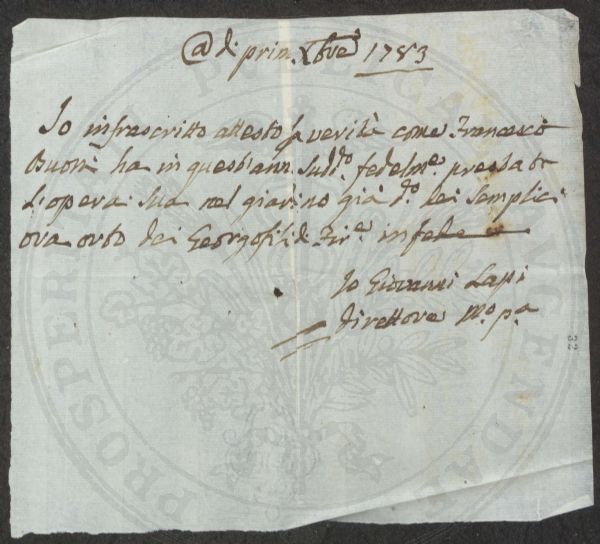 @ dì prim. Xbre 1783
Io infrascritto attesto p verità come Francesco
Buoni ha in quest'ann. Sudd.o fedelm.e prestato
l'opera sua nel giardino già d.o dei Semplici
ora orto dei Georgofili di Fir.e in fede
Io Giovanni Lapi
direttore M.o p.a
32
PROSPERITATI PUBLICAE AUGENDAE